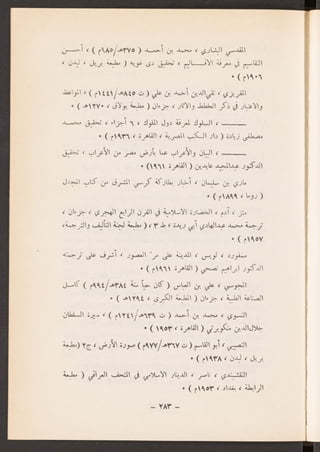 المقدسي البشاري ، محمد بن أحمد ( ٣٧٥هـ/٩٨٥م ) ، أحسن
التقاسيم في معرفة الاقاليم ، تحقيق دي غويه ( مطبعة بريل ، ليدن ،
١٩٠٦م ) •
المقريزي ، تقي‌الدين بن علي ( ت ٨٤٥هـ/١٤٤١م ) ، المواعظ
والاعتبار في ذكر الخطط والآثار ، جزءان ( مطبعة بولاق ، ١٢٧٠هـ ) •
ـــــــــ ، السلوك لمعرفة دول الملوك ، ٦ أجزاء ، تحقيق محمد
مصطفى زيادة ( دار الكتب المصرية ، القاهرة ، ١٩٣٦م ) •
ـــــــــ ، البيان والأعراب عما بأرض مصر من الأعراب ، تحقيق
الدكتور عبدالمجيد عابدين ( القاهرة ١٩٦١) •
ماري بن سليمان ، أخبار بطاركة كرسي المشرق من كتاب المجدل
( روما ، ١٨٩٩م ) •
متز ، آدم ، الحضارة الاسلامية في القرن الرابع الهجري ، جزءان ،
ترجمة محمد عبدالهادي أبي ريدة ، ط ٣ ، ( مطبعة لجنة التأليف والترجمة،
١٩٥٧م •
ممفورد ، لويس ، المدينة على مر العصور ، أشرف على ترجمته
الدكتور ابراهيم نصحي ( القاهرة ١٩٦١م ) •
المجوسي ، علي بن العباس ( كان حياً سنة ٣٨٤هـ/٩٩٤م ) كامل
الصناعة الطبية ، جزءان ( المطبعة الكبرى ، ١٢٩٤هـ ) •
النسوي ، محمد بن أحمد ( ت ٦٣٩هـ/١٢٤١م ) ، سيرة السلطان
جلال‌الدين منكوبرتي ( القاهرة ، ١٩٥٣ ) •
النصيبي ، أبو القاسم ( ت ٣٦٧هـ/٩٧٧م ) صورة الأرض ، ج٢ (مطبعة
بريل ، ليدن ، ١٩٣٨م ) •
النقشبندي ، ناصر ، الدينار الاسلامي في المتحف العراقي ( مطبعة
الرابطة ، بغداد ، ١٩٥٣م ) •
– ٢٨٣ –